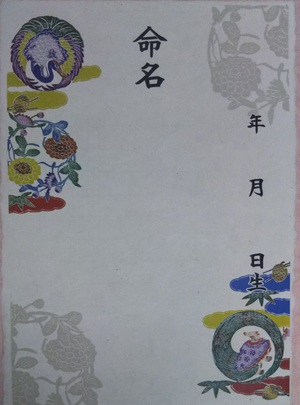 命名
年月日生